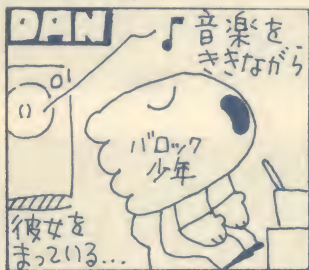 DAN
音楽を
ききながら
バロック
少年
彼女を
まっている...